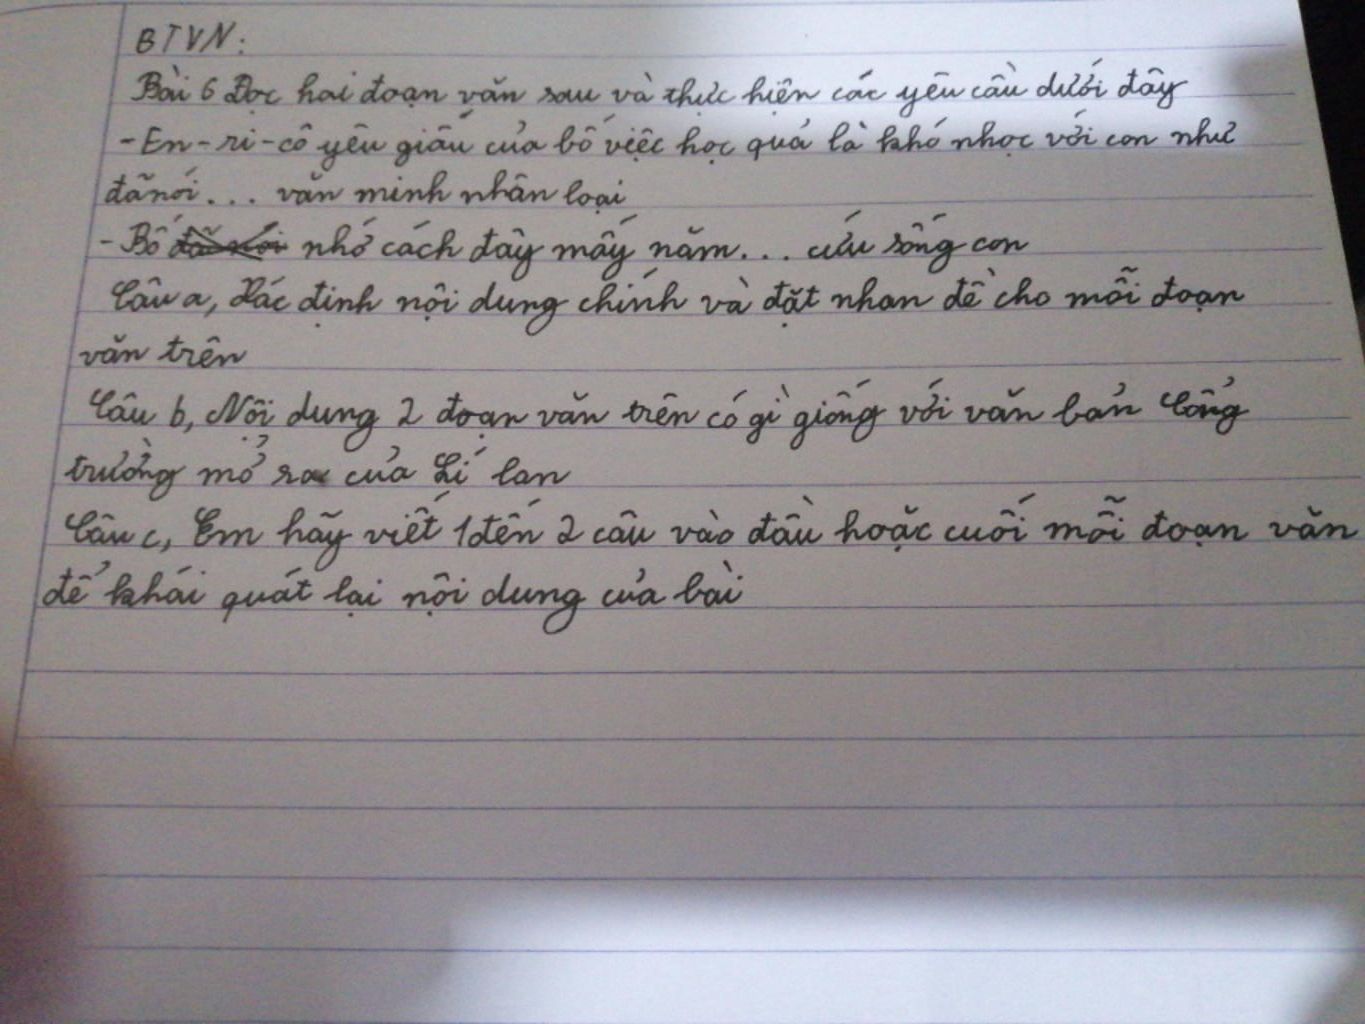 BTVN:
Bài 6 Đọc hai đoạn văn sau và thực hiện các yêu cầu dưới đây
- En - ri - cô yêu giấu của bố việc học quả là khó nhọc với con như
đã nói... văn minh nhân loại
- Bố đã nói nhớ cách đây mấy năm... cứu sống con
Câu a, Xác định nội dung chính và đặt nhan đề cho mỗi đoạn
văn trên
Câu b, Nôi dung 2 đoạn văn trên có gì giống với văn bản Cổng
trường mở ra của Lí lan
Câu c, Em hãy viết 1 đến 2 câu vào đầu hoặc cuối mỗi đoạn văn
để khái quát lại nội dung của bài